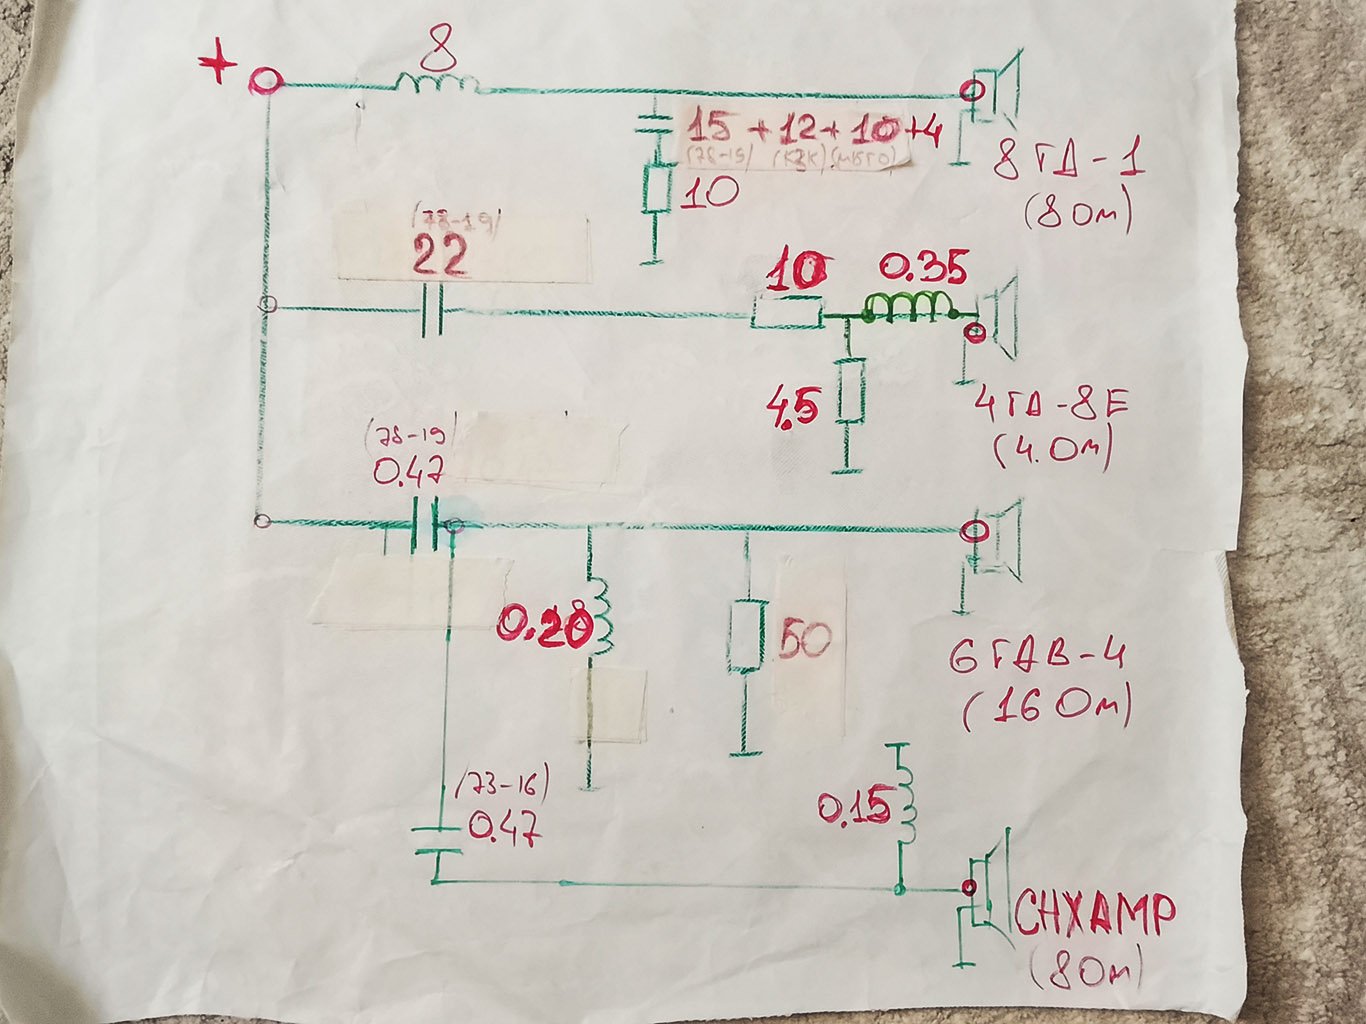 +
8
15 + 12 + 10 + 4
(78-19) (К3К) (МБГО)
10
8ГД-1
(8 Ом)
(78-19)
22
10
0.35
4.5
4ГД-8Е
(4. Ом)
(78-19)
0.47
0.28
50
6ГДВ-4
(16 Ом)
(73-16)
0.47
0.15
СНХАМР
(8 Ом)